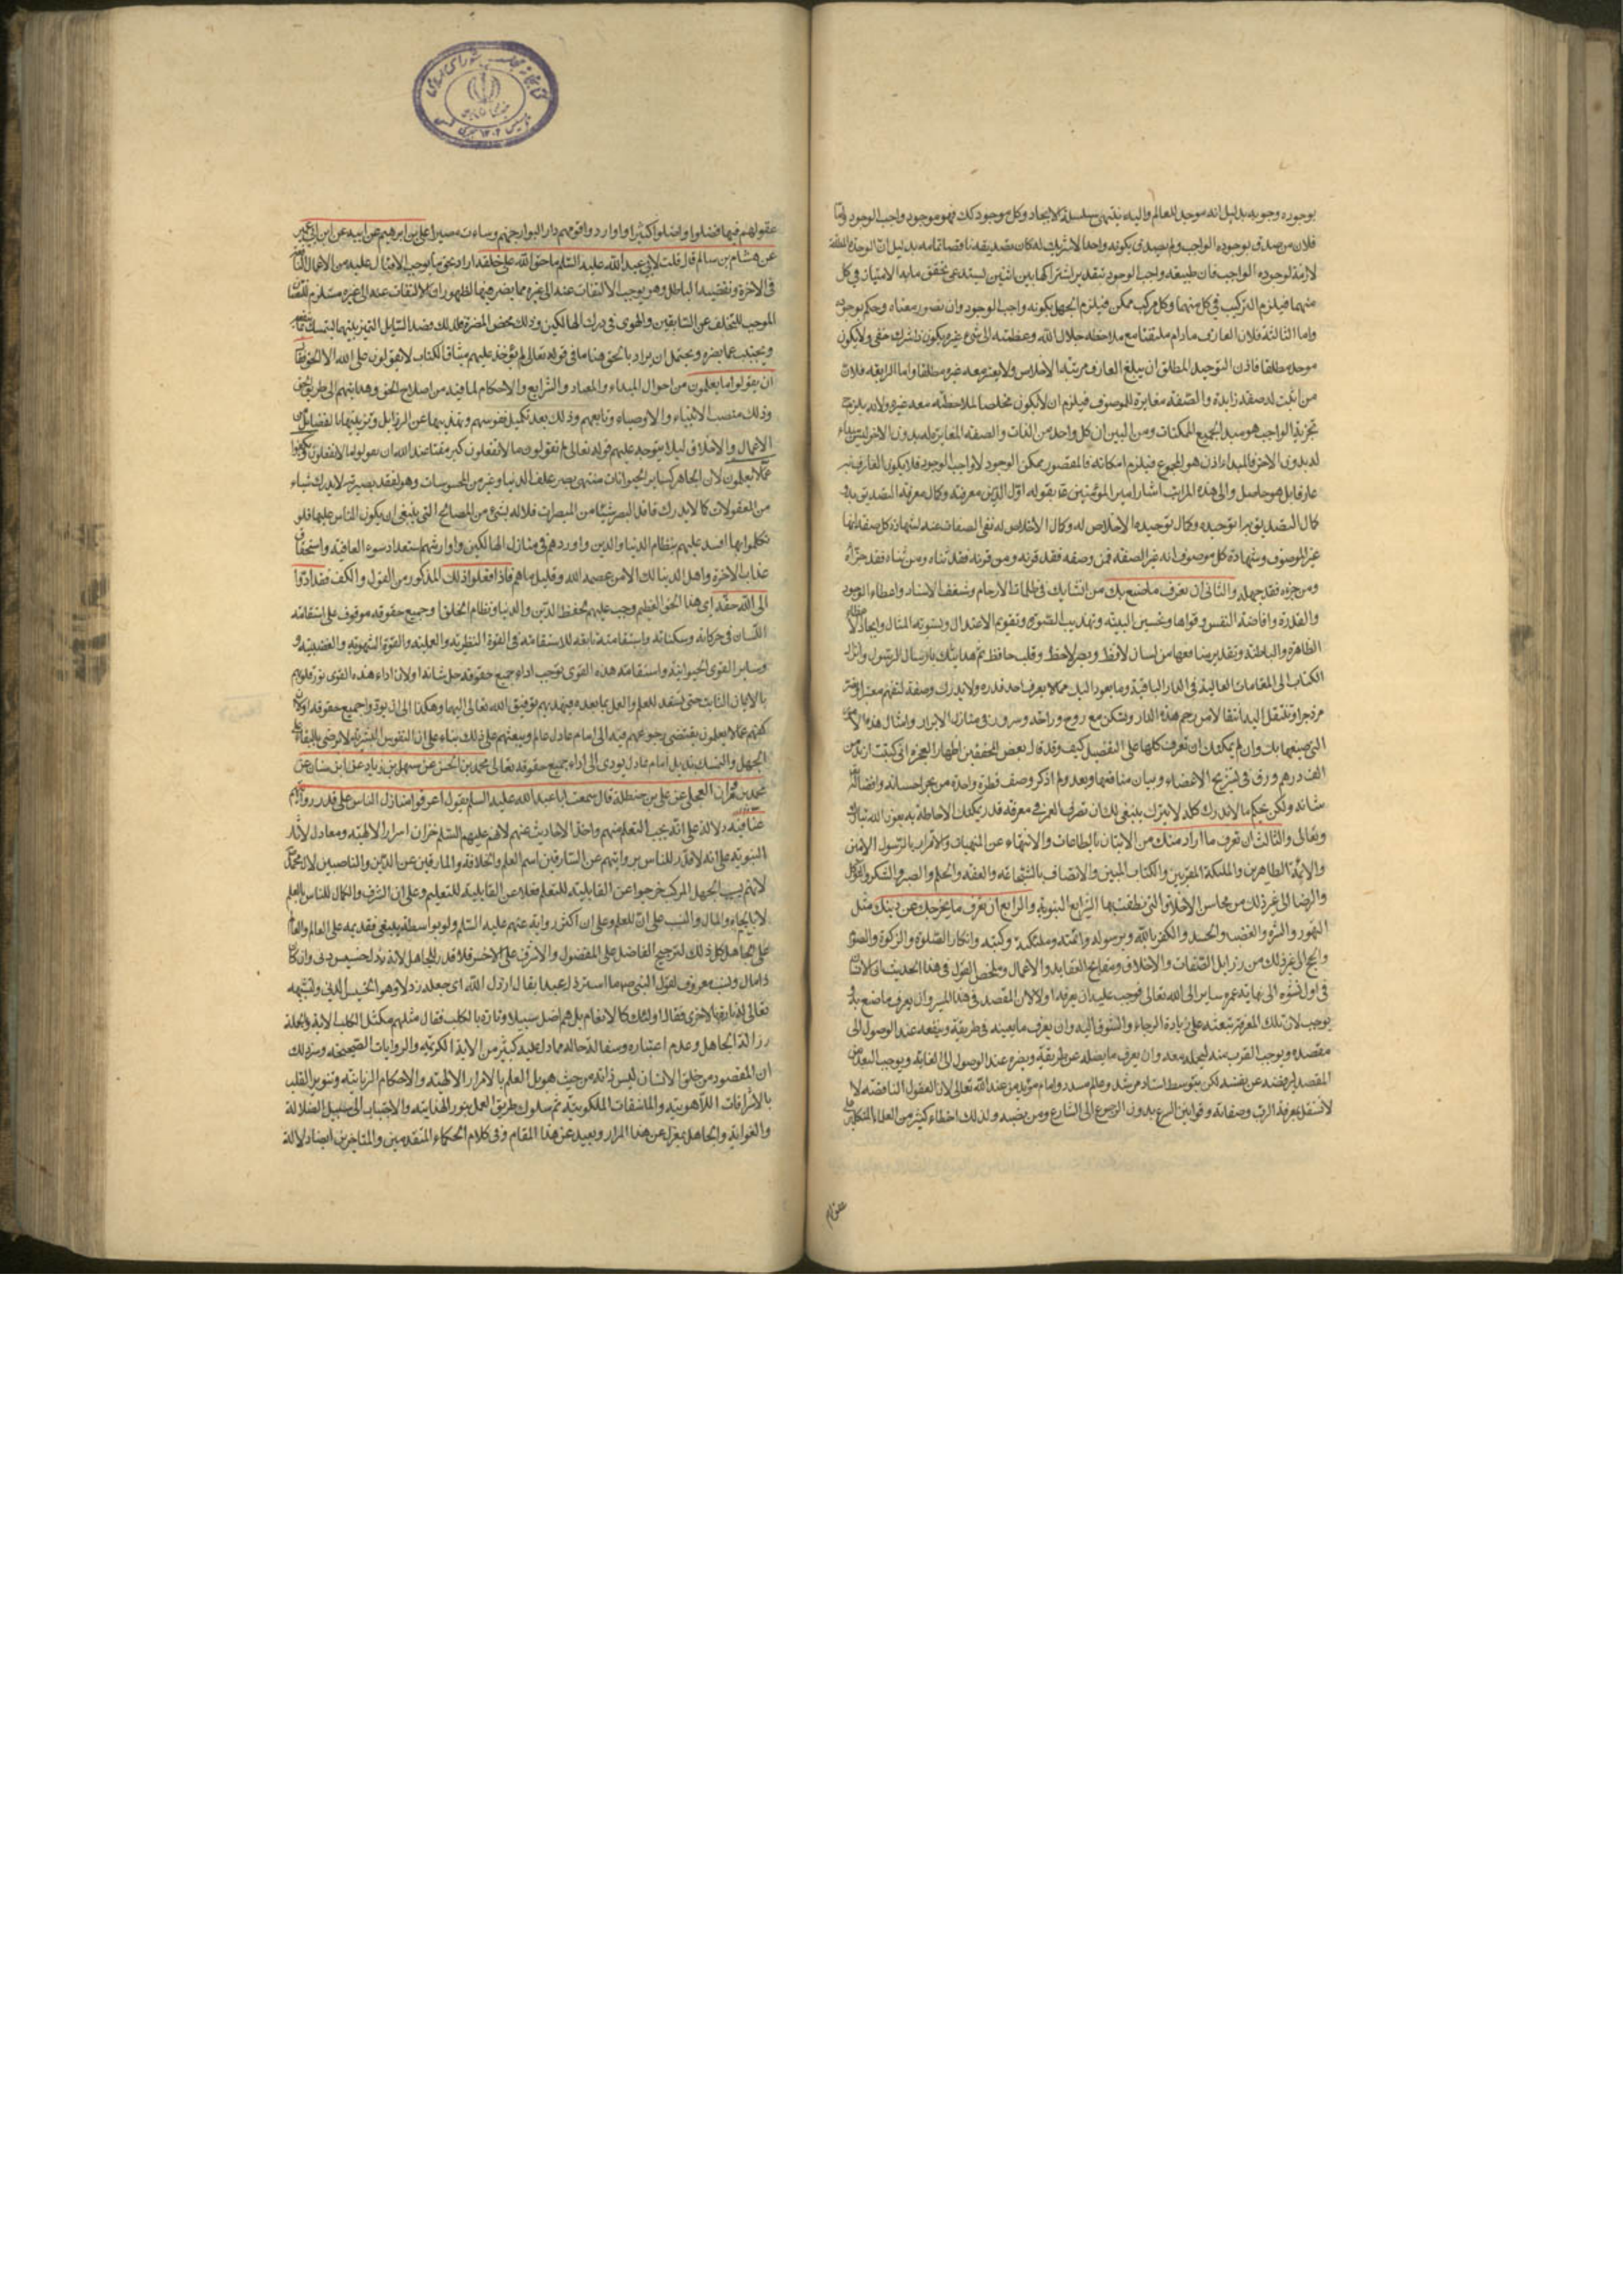 بوجوده وجوبه بدليل انه موجد للعالم واليه ينتهى سلسلة الايجاد وكل موجود كك فهو موجود واجب الوجود واما
فلان من صدق بوجوده الواجب ولم يصدق بكونه واحدا لا شريك له كان تصديقه ناقصا تمامه بدليل ان الوحدة
لازمة لوجوده الواجب فان طبيعة واجب الوجود بتقدير اشتراكها بين اثنين يستدعى تحقق ما به الامتياز فى كل
منهما فيلزم التركيب فى كل منهما وكل مركب ممكن فيلزم الجهل بكونه واجب الوجود وان تصور معناه وحكم بوجوده
واما الثالثة فلان العارف مادام ملتفتا مع ملاحظة جلال الله وعظمته الى شىء غيره يكون ذا شرك خفى ولا يكون
موحدا مطلقا فاذن التوحيد المطلق ان يبلغ العارف مرتبة الاخلاص ولا يعتبر معه غيره مطلقا واما الرابعة فلان
من اثبت له صفة زايدة والصفة مغايرة للموصوف فيلزم ان لا يكون مخلصا لملاحظته معه غيره ولانه يلزم
تجزية الواجب هو مبدأ لجميع الممكنات ومن البين ان كل واحد من الذات والصفة المغايرة له بدون الاخر ليس مبداء
له بدون الاخر فالمبداء اذن هو المجموع فيلزم امكانه فالمتصور ممكن الوجود لا واجب الوجود فلا يكون العارف
عارفا بل هو جاهل والى هذه المراتب اشار امير المؤمنين ع بقوله اول الدين معرفته وكمال معرفته التصديق به و
كمال التصديق به توحيده وكمال توحيده الاخلاص له وكمال الاخلاص له نفى الصفات عنه لشهادة كل صفة انها
غير الموصوف وشهادة كل موصوف انه غير الصفة فمن وصفه فقد قرنه ومن قرنه فقد ثناه ومن ثناه فقد جزأه
ومن جزءه فقد جهله والثانى ان تعرف ما صنع بك من انشائك فى ظلمات الارحام وشغف الاستار واعطاء الوجود
والقدرة وافاضة النفس وقواها وتحسين البنية وتهذيب الصورة وتقويم الاعتدال وتسوية المثال وايجاد
الظاهرة والباطنة وتقدير منافعها من لسان لافظ وبصر لاحظ وقلب حافظ ثم هدايتك بارسال الرسول وانزال
الكتاب الى المقامات العالية فى الدار الباقية وما يعود اليك مما لا يعرف احد قدره ولا يدرك وصفه لتفهم معتبرا وتقصر
مزدجرا وتنتقل اليه انتقالا من رحم هذه الدار وتسكن مع روح وراحة وسرور فى منازل الابرار وامثال هذه الامور
التى صنعها بك وان لم يمكنك ان تعرف كلها على التفصيل كيف وقد قال بعض المحققين اظهارا للعجز انى كتبت ازيد من
الف درهم ورق فى تشريح الاعضاء وبيان منافعها وبعد ولم اذكر وصف قطرة واحدة من بحر احسانه وافضاله
شانه ولكن بحكم ما لا يدرك كله لا يترك ينبغى لك ان تصرف العمر فى معرفة قدر يمكنك الاحاطة به بعون الله تبارك
وتعالى والثالث ان تعرف ما اراد منك من الاتيان بالطاعات والانتهاء عن المنهيات والاقرار بالرسول الامين
والائمة الطاهرين والملئكة المقربين والكتاب المبين والاتصاف بالشجاعة والعفة والحلم والصبر والشكر والتوكل
والرضا الى غير ذلك من محاسن الاخلاق التى نطقت بها الشرايع النبوية والرابع ان تعرف ما يخرجك عن دينك مثل
التهور والشره والغضب والحسد والكفر بالله وبرسوله وائمته وملئكته وكتبه وانكار الصلوة والزكوة والصوم
والحج الى غير ذلك من رذايل الصفات والاخلاق ومقابح العقايد والاعمال وملخص القول فى هذا الحديث ان الانسان
فى اول نشوه الى نهاية عمره ساير الى الله تعالى فوجب عليه ان يعرفه اولا لانه المقصد فى هذا السير وان يعرف ما صنع به
يوجب لان تلك المعرفة تبعثه على زيادة الرجاء والشوق اليه وان يعرف ما يعينه فى طريقه وينفعه عند الوصول الى
مقصده ويوجب القرب منه ليحمله معه وان يعرف ما يضله عن طريقه ويضره عند الوصول الى الغاية ويوجب البعد عن
المقصد ليرفضه عن نفسه لكن بتوسط استاد مرشد وعالم مسدد وامام مؤيد من عند الله تعالى لان العقول الناقصة لا
لا تستقل بمعرفة الرب وصفاته وقوانين الشرع بدون الرجوع الى الشارع ومن نصبه ولذلك اخطاء كثير من العلماء المتكلمين
عقولهم
عقولهم فيها فضلوا واضلوا كثيرا واوردوا قومهم دار البوار جهنم وساءت مصيرا على بن ابرهيم عن ابيه عن ابن ابى عمير
عن هشام بن سالم قال قلت لابى عبد الله عليه السلام ما حق الله على خلقه اراد بحق ما يوجب الاقبال عليه من الاعمال
فى الاخرة ونقيضه الباطل وهو يوجب الالتفات عنه الى غيره مما يضر فيها لظهور ان الالتفات عنه الى غيره مستلزم للنقصان
الموجب للتخلف عن السابقين والهوى فى درك الهالكين وذلك محض المضرة فلذلك قصد السايل التميز بينهما ليتمسك
ويجتنب عما يضره ويحتمل ان يراد بالحق هنا ما فى قوله تعالى الم يؤخذ عليهم ميثاق الكتاب لا يقولون على الله الا الحق فقال
ان يقولوا ما يعلمون من احوال المبداء والمعاد والشرايع والاحكام لما فيه من اصلاح الخلق وهدايتهم الى طريق الحق
وذلك منصب الانبياء والاوصياء وتابعهم وذلك بعد تكميل نفوسهم وتهذيبها عن الرذايل وتزيينها بالفضايل من
الاعمال والاخلاق ليلا يتوجه عليهم قوله تعالى لم تقولون ما لا تفعلون كبر مقتا عند الله ان تقولوا ما لا تفعلون ويكفوا
عما لا يعلمون لان الجاهل كساير الحيوانات منتهى بصره علف الدنيا وغيره من المحسوسات وهو لفقد بصيرته لا يدرك شياء
من المعقولات كما لا يدرك فاقد البصر شيئا من المبصرات فلا له بشىء من المصالح التى ينبغى ان يكون الناس عليها فلو
تكلموا بها افسد عليهم نظام الدنيا والدين واوردهم فى منازل الهالكين واورثهم استعداد سوء العاقبة واستحقاق
عذاب الاخرة واهل الدنيا لك الا من عصمه الله وقليل ما هم فاذا فعلوا ذلك المذكور من القول والكف فقد ادوا
الى الله حقه اى هذا الحق العظيم وجب عليهم لحفظ الدين والدنيا ونظام الخلق او جميع حقوقه موقوف على استقامة
اللسان فى حركاته وسكناته واستقامته تابعة للاستقامة فى القوة النظرية والعملية والقوة الشهوية والغضبية و
وساير القوى الحيوانية واستقامة هذه القوى توجب اداء جميع حقوقه جل شانه او لان اداء هذه القوى نور قلوبهم
بالايمان الثابت حتى تستعد للعلم والعمل بما بعده فيهديهم توفيق الله تعالى اليهما وهكذا الى ان يؤدوا جميع حقوقه او لان
كفهم عما لا يعلمون يقتضى رجوعهم فيه الى امام عادل عالم ويبعثهم على ذلك بناء على ان النفوس البشرية لا ترضى بالبقاء على
الجهل والتمسك بذيل امام عادل يودى الى اداء جميع حقوقه تعالى محمد بن الحسن عن سهل بن زياد عن ابن سنان عن
محمد بن مروان العجلى عن على بن حنظلة قال سمعت ابا عبد الله عليه السلام يقول اعرفوا منازل الناس على قدر روايتهم
عنا فيه دلالة على انه يجب التعلم منهم واخذ الاحاديث عنهم لانهم عليهم السلام خزان اسرار الالهية ومعادل لاثار
النبوية وعلى انه لا قدر للناس بروايتهم عن السارقين اسم العلم والخلافة والمارقين عن الدين والناصبين لال محمد
لانهم بسبب الجهل المركب خرجوا عن القابلية للتعلم فضلا عن القابلية للتعليم وعلى ان الشرف والكمال للناس بالعلم
لا بالجاه والمال والنسب على ان للعلم وعلى ان اكثر رواية عنهم عليه السلم ولو بواسطة ينبغى تقديمه على العالم والعالم
على الجاهل كل ذلك لترجيح الفاضل على المفضول والاشرف على الاخس فلا قدر للجاهل لانه رذل خسيس دنى وان كان
ذا مال ونسب معروف لقول النبى ص ما استرذل عبدا يقال ارذل الله اى جعله رذلا وهو الخسيس الدنى ولتشبيهه
تعالى له تارة بالاخرى فقال اولئك كالانعام بل هم اضل سبيلا وتارة بالكلب فقال مثلهم كمثل الكلب الاية وبالجملة
رزالة الجاهل وعدم اعتباره وسفالة حاله مما دل عليه كثير من الاية الكريمة والروايات الصحيحة وسر ذلك
ان المقصود من خلق الانسان ليس ذاته من حيث هو بل العلم بالاسرار الالهية والاحكام الربانية وتنوير القلب
بالاشراقات اللاهوتية والمكاشفات الملكوتية ثم سلوك طريق العمل بنور الهداية والاجتناب الى سبيل الضلالة
والغواية والجاهل بمعزل عن هذا المرام وبعيد عن هذا المقام وفى كلام الحكماء المتقدمين والمتاخرين ايضا دلالة